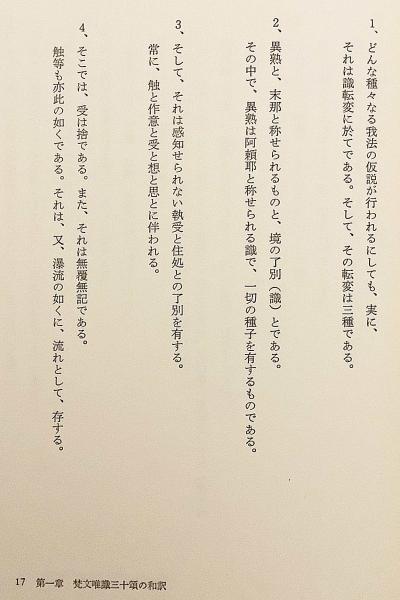 1、どんな種々なる我法の仮説が行われるにしても、実に、
それは識転変に於てである。そして、その転変は三種である。
2、異熟と、末那と称せられるものと、境の了別（識）とである。
その中で、異熟は阿頼耶と称せられる識で、一切の種子を有するものである。
3、そして、それは感知せられない執受と住処との了別を有する。
常に、触と作意と受と想と思とに伴われる。
4、そこでは、受は捨である。また、それは無覆無記である。
触等も亦此の如くである。それは、又、瀑流の如くに、流れとして、存する。
17 第一章 梵文唯識三十頌の和訳